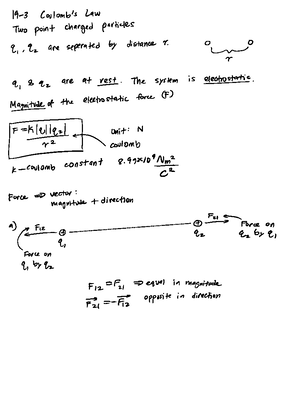 19-3 Coulomb's Law
Two point charged particles
q₁, q₂ are seperated by distance r.
r
q₁ & q₂ are at rest. The system is electrostatic.
Magnitude of the electrostatic force (F)
F = K|q₁||q₂| / r²
Unit: N
coulomb
K - coulomb constant 8.99×10⁹ Nm²/C²
Force ⇒ vector:
magnitude + direction
a) F₁₂ + q₁ + q₂ F₂₁
Force on q₁ by q₂
Force on q₂ by q₁
F₁₂ = F₂₁ ⇒ equal in magnitude
F⃗₂₁ = -F⃗₁₂ opposite in direction